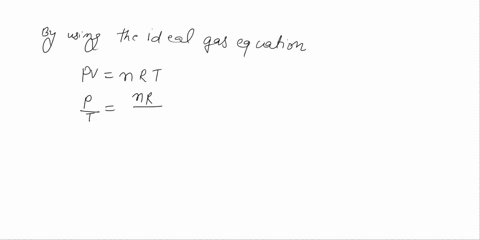 By using the ideal gas equation
PV = nRT
P/T = nR/